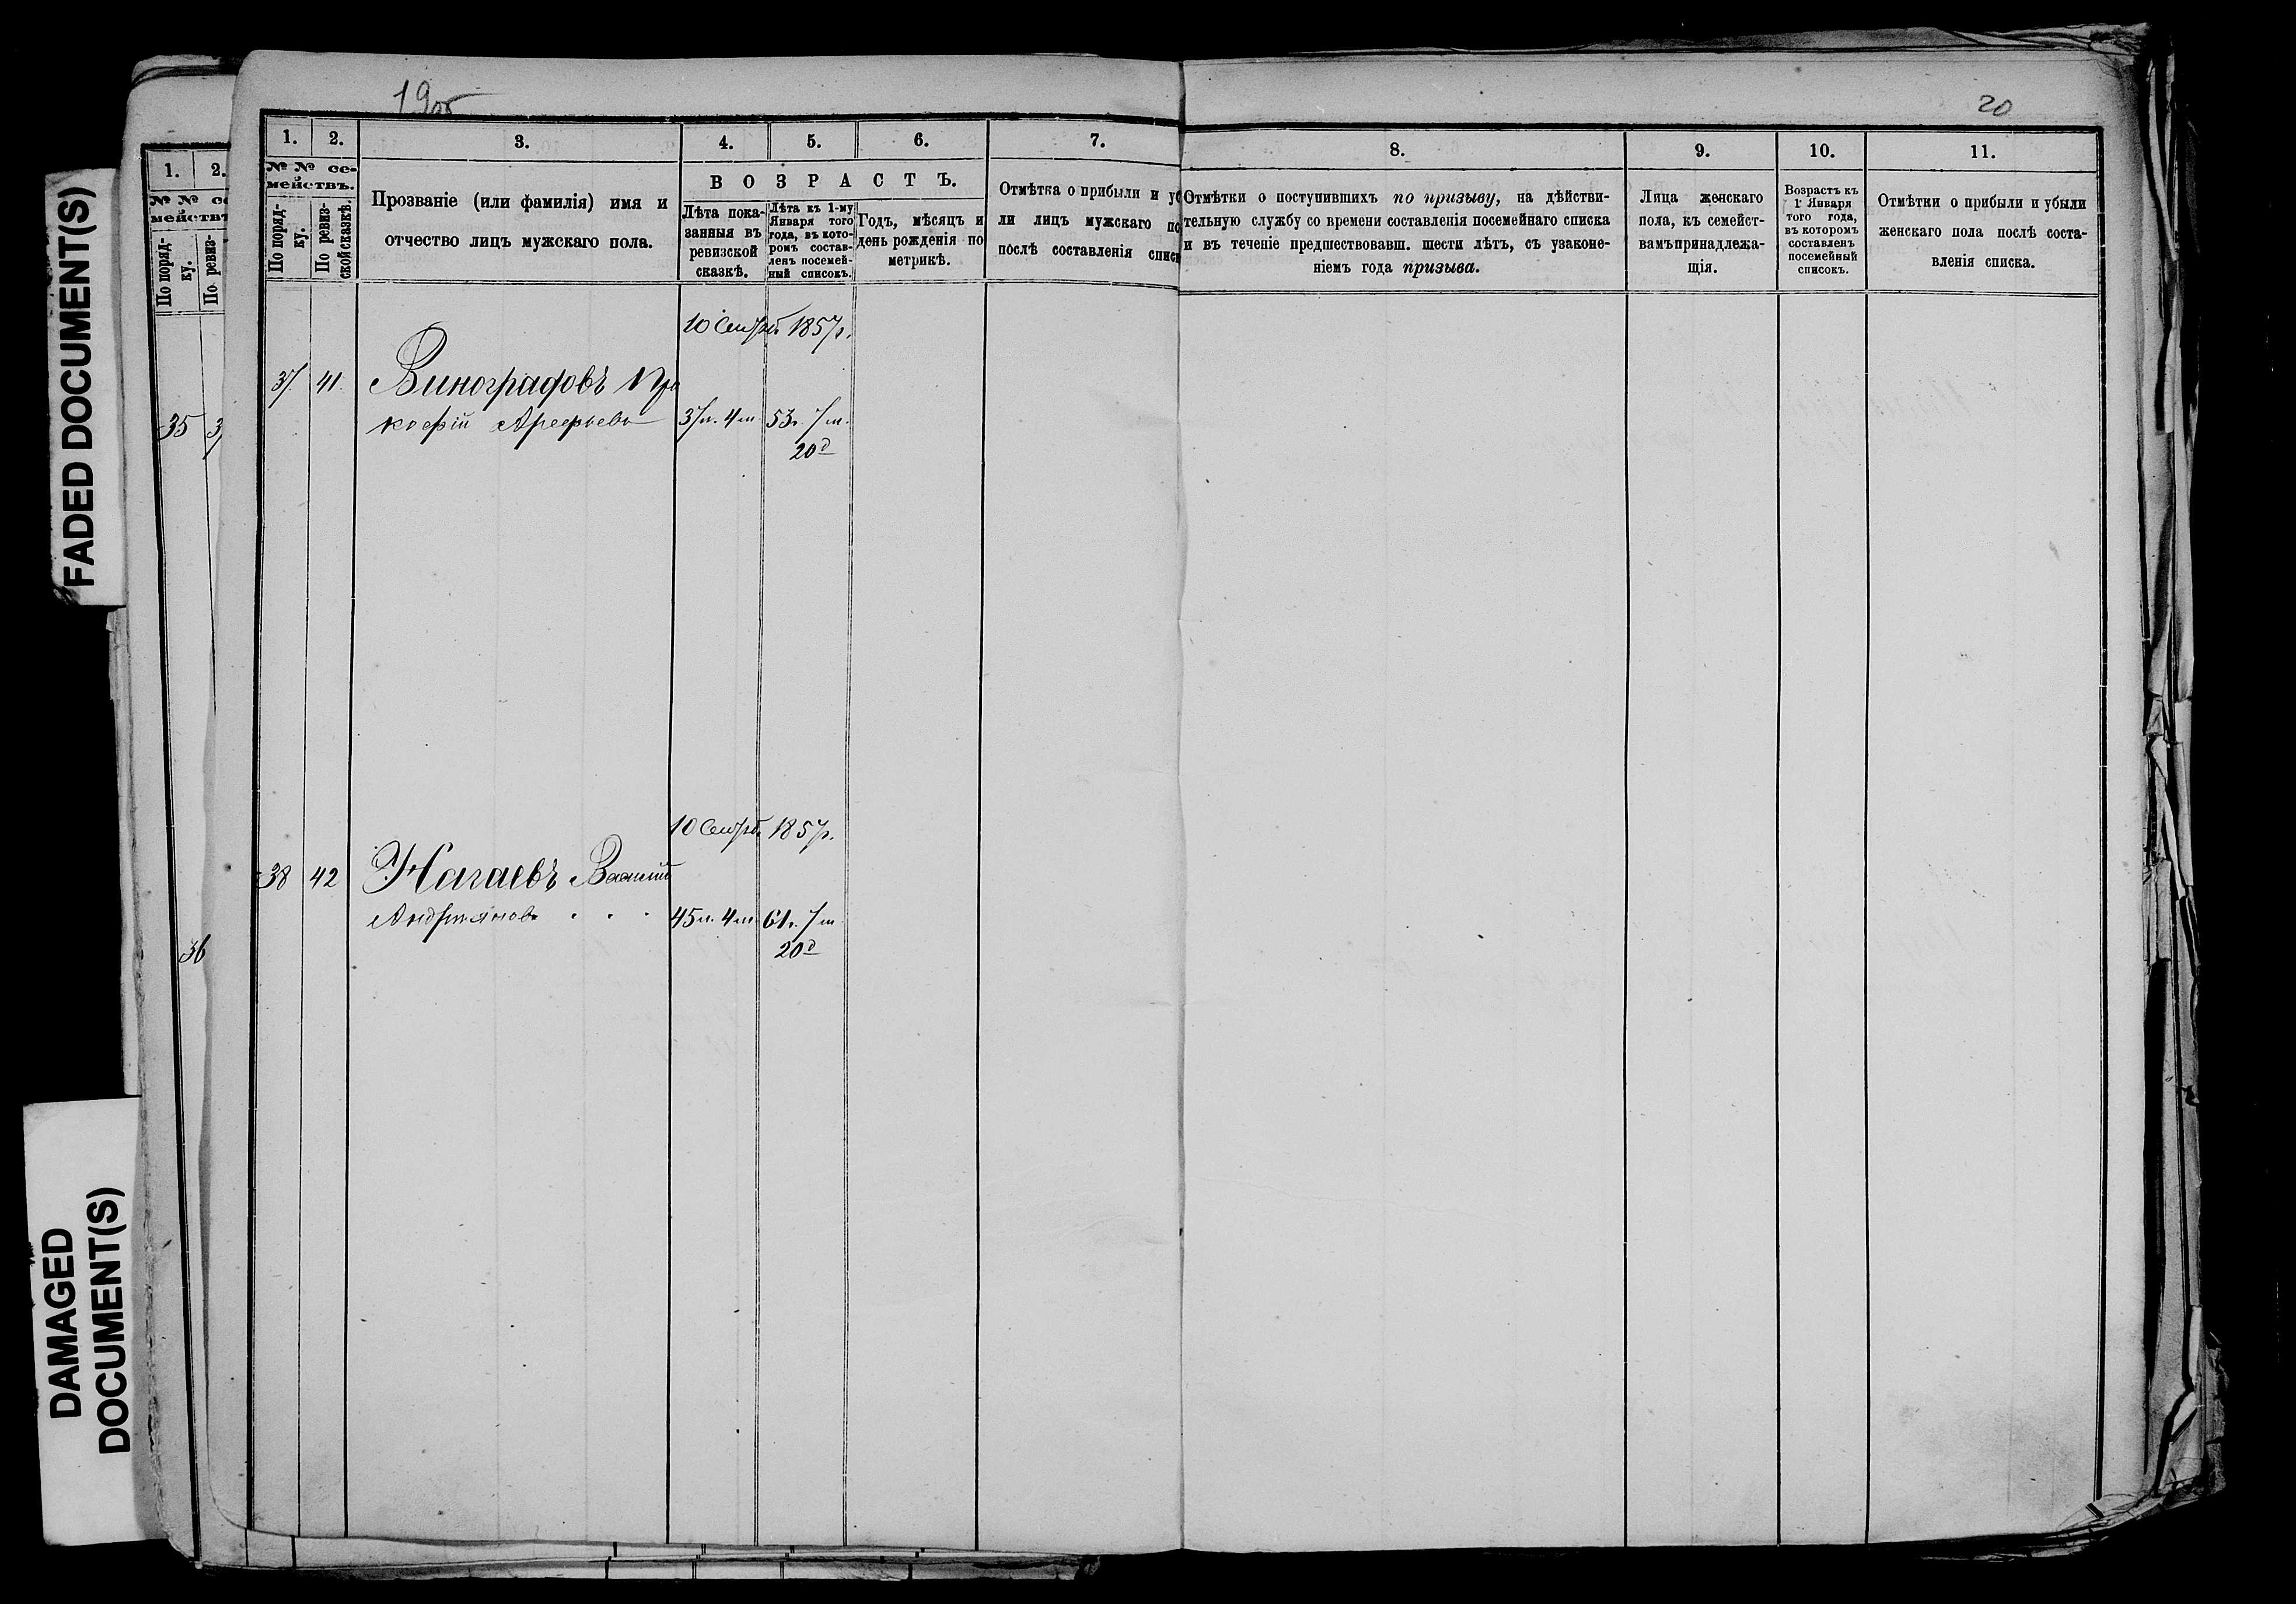 FADED DOCUMENT(S)
DAMAGED
DOCUMENT(S)
1. 2.
№ № се
мействъ
По поряд-
ку.
По ревиз-
35
36
19об
20
1. 2. 3. 4. 5. 6. 7. 8. 9. 10. 11.
№ № се-
мействъ.
По поряд-
ку.
По ревиз-
ской сказкѣ.
Прозваніе (или фамилія) имя и
отчество лицъ мужскаго пола.
ВОЗРАСТЪ.
Лѣта пока-
занныя въ
ревизской
сказкѣ.
Лѣта къ 1-му
Января того
года, въ кото-
ромъ состав-
ленъ посемей-
ный списокъ.
Годъ, мѣсяцъ и
день рожденія по
метрикѣ.
Отмѣтка о прибыли и у
ли лицъ мужскаго по
послѣ составленія спис
Отмѣтки о поступившихъ по призыву, на дѣйстви-
тельную службу со времени составленія посемейнаго списка
и въ теченіе предшествовавш. шести лѣтъ, съ узаконе-
ніемъ года призыва.
Лица женскаго
пола, къ семейст-
вамъ принадлежа-
щія.
Возрастъ къ
1 Января
того года,
въ которомъ
составленъ
посемейный
списокъ.
Отмѣтки о прибыли и убыли
женскаго пола послѣ соста-
вленія списка.
10 Сентяб. 1857г.
37. 41. Виноградовъ Про
кофій Арефьевъ 37л. 4м. 53г. 7м.
20д
10 Сентяб. 1857г.
38 42 Нагаевъ Василій
Андрияновъ . . . 45л. 4м. 61г. 7м.
20д